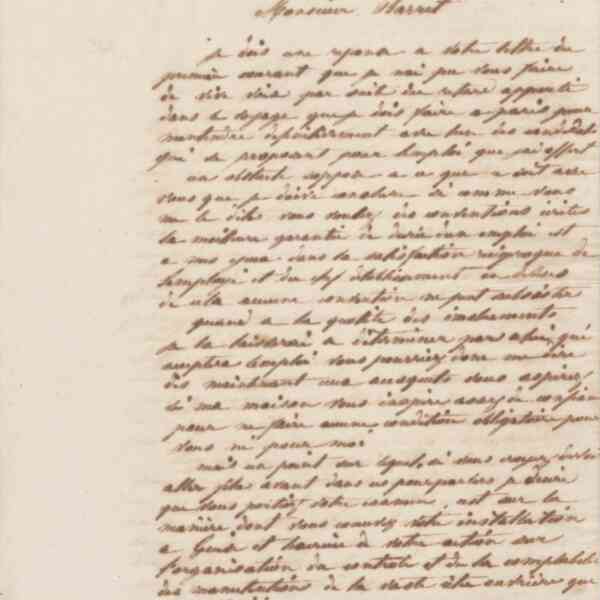 Monsieur Barret
je dois une reponse a votre lettre du
premier courant que je nai pu vous faire
de vive voix par suite du retard apporté
dans le voyage que je dois faire a paris pour
mentendre définitivement avec lun des candidats
qui se proposent pour lemploi que jai offert
un obstacle soppose a ce que ce soit avec
vous que je doive conclure si comme vous
me le dites vous voulez des conventions écrites
la meilleure garantie de durée dun emploi est
a mes yeux dans la satisfaction réciproque de
lemployé et du chef détablissement en dehors
de cela aucune convention ne peut subsister
quand a la quotité des émoluments
je la laisserai a déterminer par celui qui
acceptera lemploi vous pourriez donc me dire
dès maintenant ceux auxquels vous aspirez
si ma maison vous inspire assez de confiance
pour ne faire aucune condition obligatoire pour
vous ni pour moi
mais un point sur lequel, si vous croyez devoir
aller plus avant dans ces pourparlers je désire
que vous portiez votre examen, est sur la
manière dont vous concevez votre installation
a Guise et lavenir de votre action sur
l'organisation du controle et de la comptabilité
des manutentions de la vaste cité ouvrière que